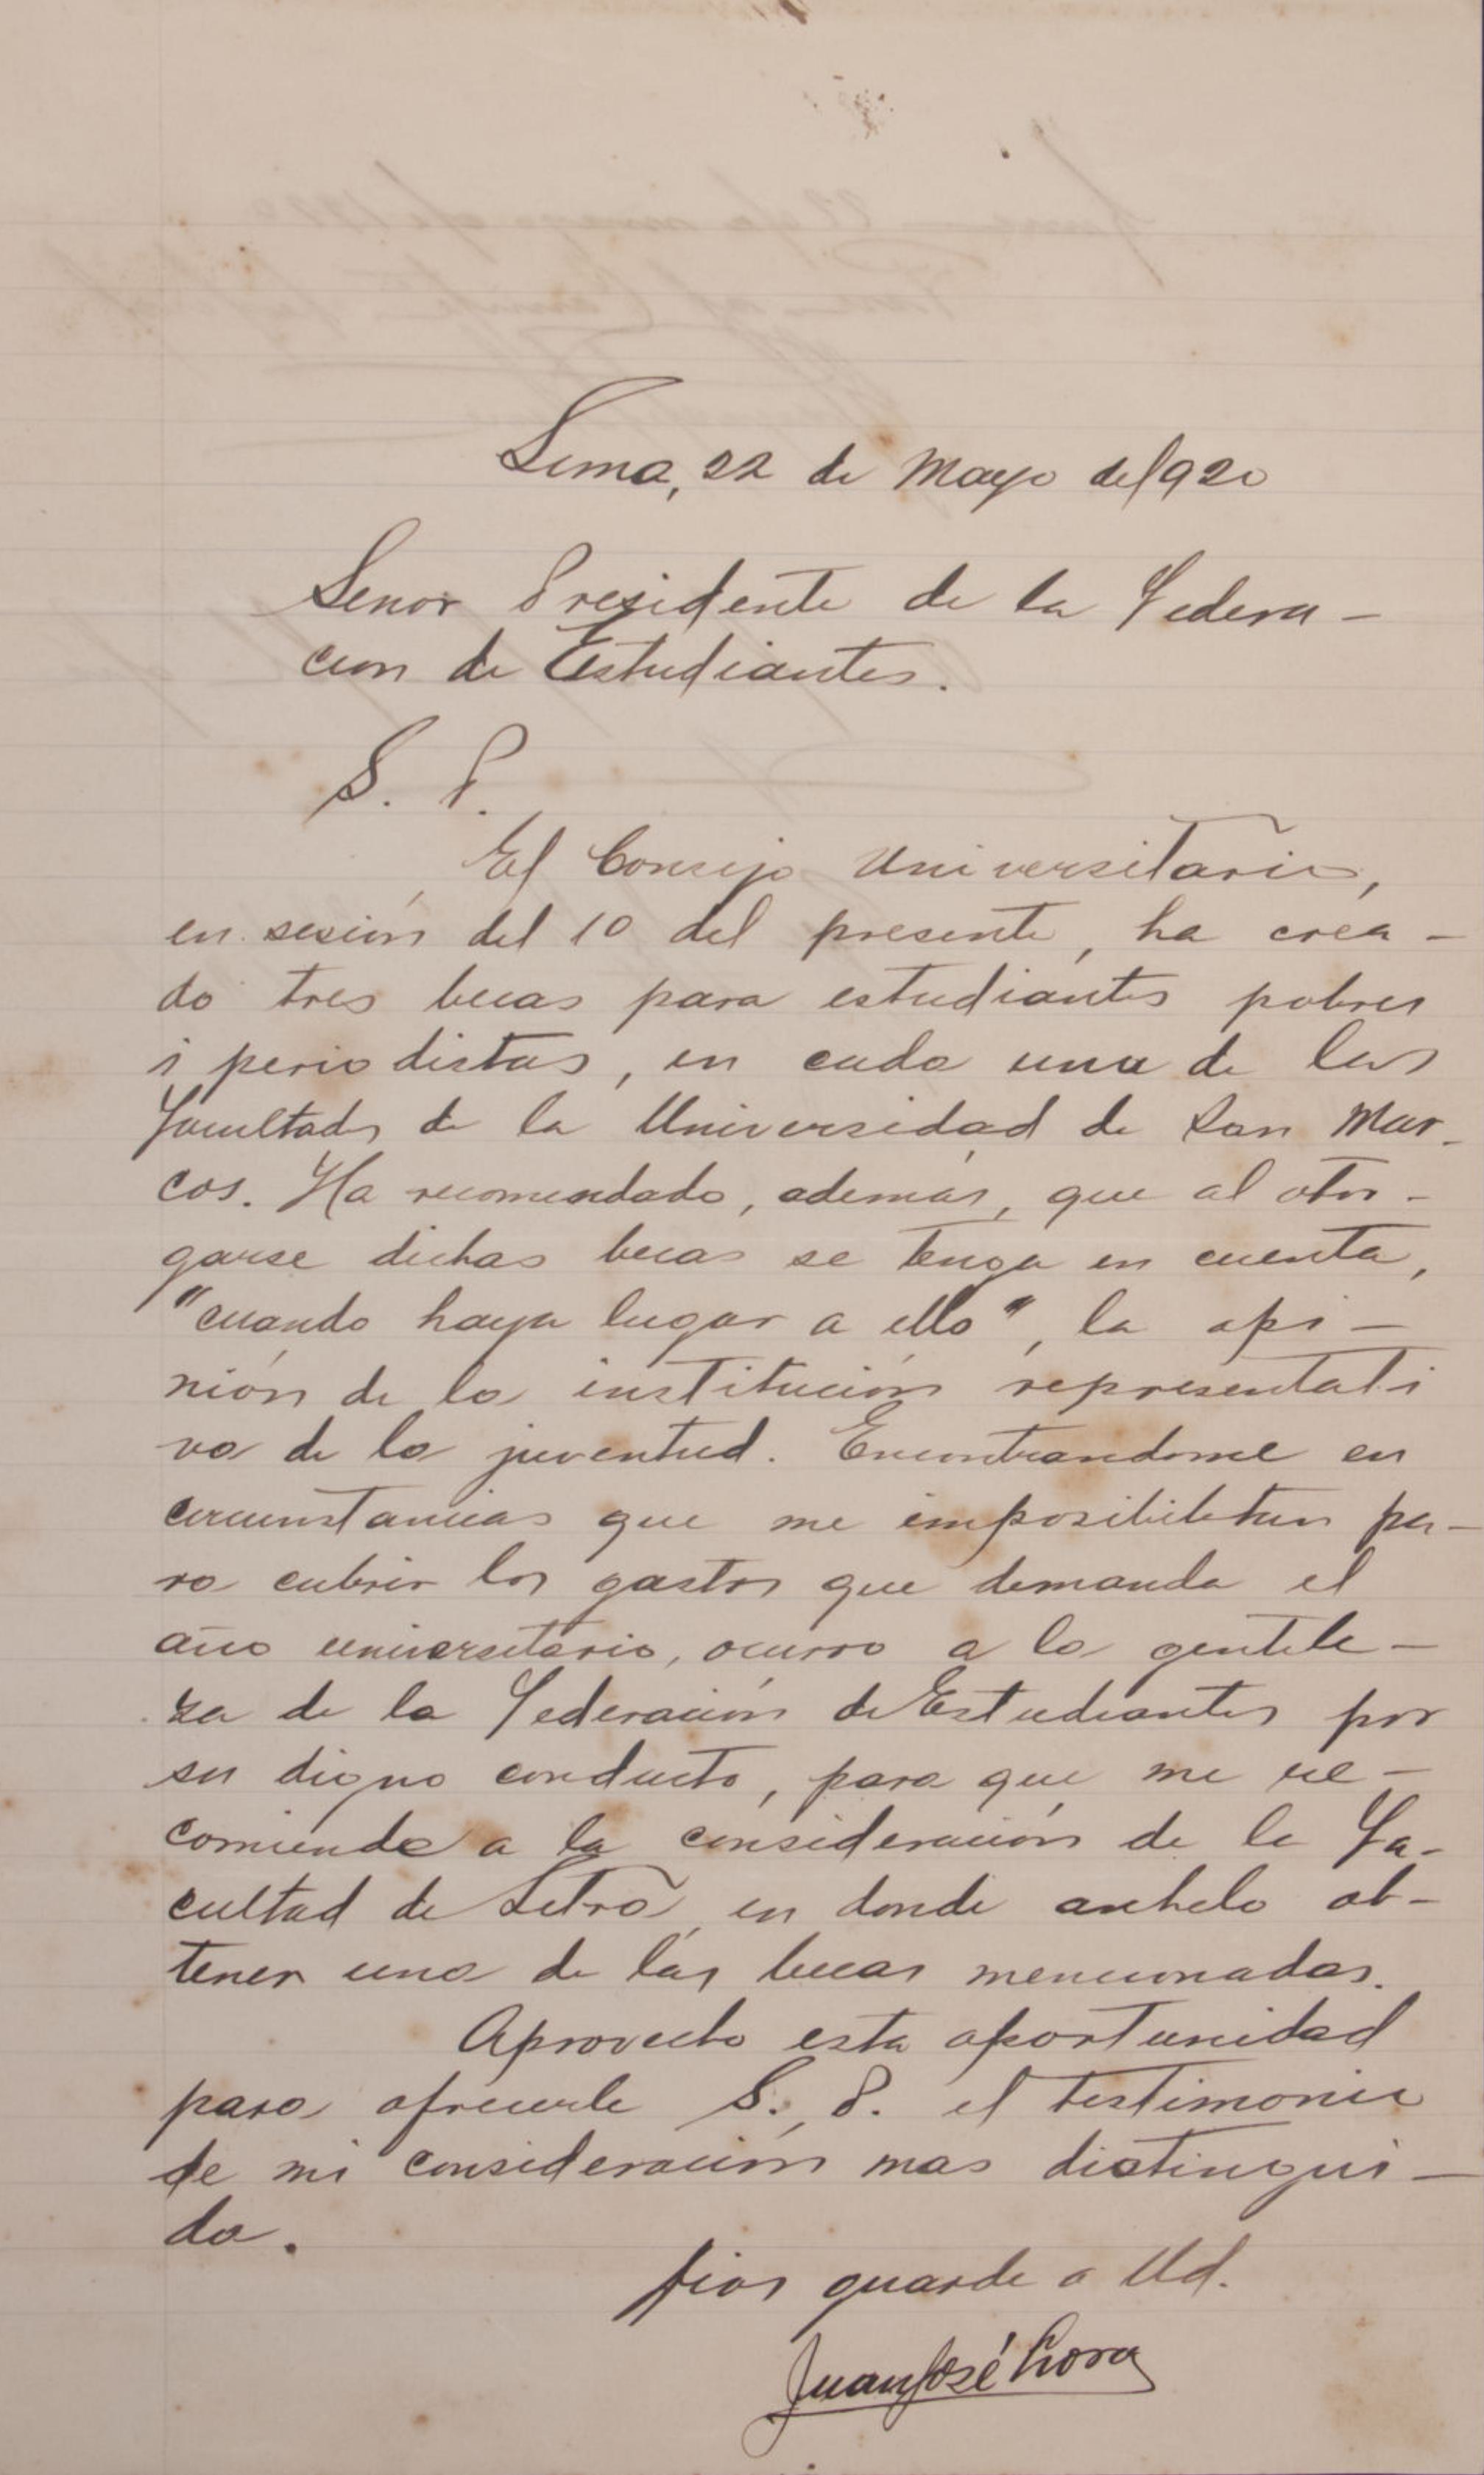 Lima, 22 de Mayo de 1920
Señor Presidente de la Federa-
cion de Estudiantes.
S. P.
El Consejo Universitario,
en sesión del 10 del presente, ha crea-
do tres becas para estudiantes pobres
i periodistas, en cada una de las
facultades de la Universidad de San Mar-
cos. Ha recomendado, además, que al otor-
garse dichas becas se tenga en cuenta,
"cuando haya lugar a ello", la opi-
nión de la institución representati
va de la juventud. Encontrandome en
circunstancias que me imposibilitan pa-
ra cubrir los gastos que demanda el
año universitario, ocurro a la gentile-
za de la Federación de Estudiantes por
su digno conducto, para que me re-
comiende a la consideración de la Fa-
cultad de Letras, en donde anhelo ob-
tener una de las becas mencionadas.
Aprovecho esta oportunidad
para ofrecerle S. P. el testimonio
de mi consideración mas distingui-
da.
Dios guarde a Ud.
Juan José Lora